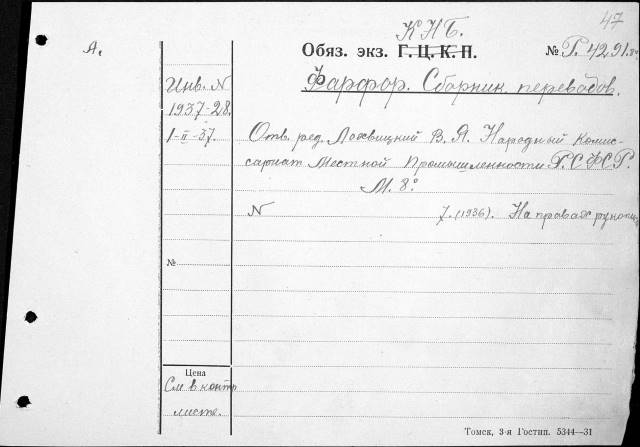 47
К Н Б.
А.
Обяз. экз. Г. Ц. К. П.
№ Р. 4291.
Фарфор. Сборник переводов.
Инв. N
1937-28.
1-II-37.
Отв. ред. Лохвицкий В. Я. Народный Комис-
сариат Местной Промышленности Р.С.Ф.С.Р.
М. 8°
N 7. (1936). На правах рукописи
№
Цена
См в контр
листе.
Томск, 3-я Гостип. 5344—31